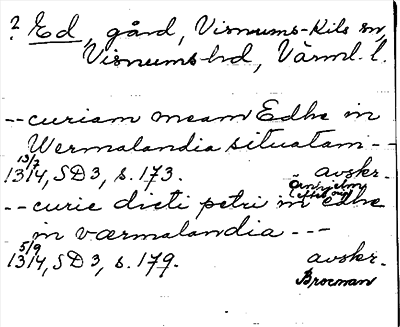 ? Ed, gård, Visnums-Kils sn,
Visnums hd, Värml. l.
-- curiam meam Edhe in
Wermalandia situatam --
13/7
1314, SD 3, s. 173. avskr.
Örnhjelm
(efter orig.)
-- curie dicti petri in edhe
in værmalandia ---
5/9
1314, SD 3, s. 179. avskr.
Brocman